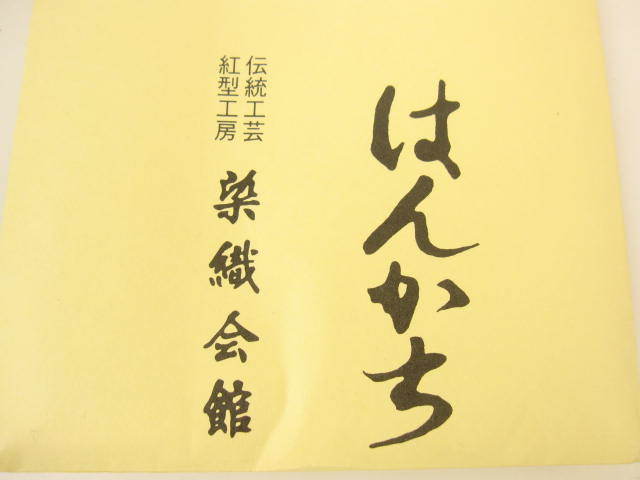 はんかち
伝統工芸
紅型工房
染織会館